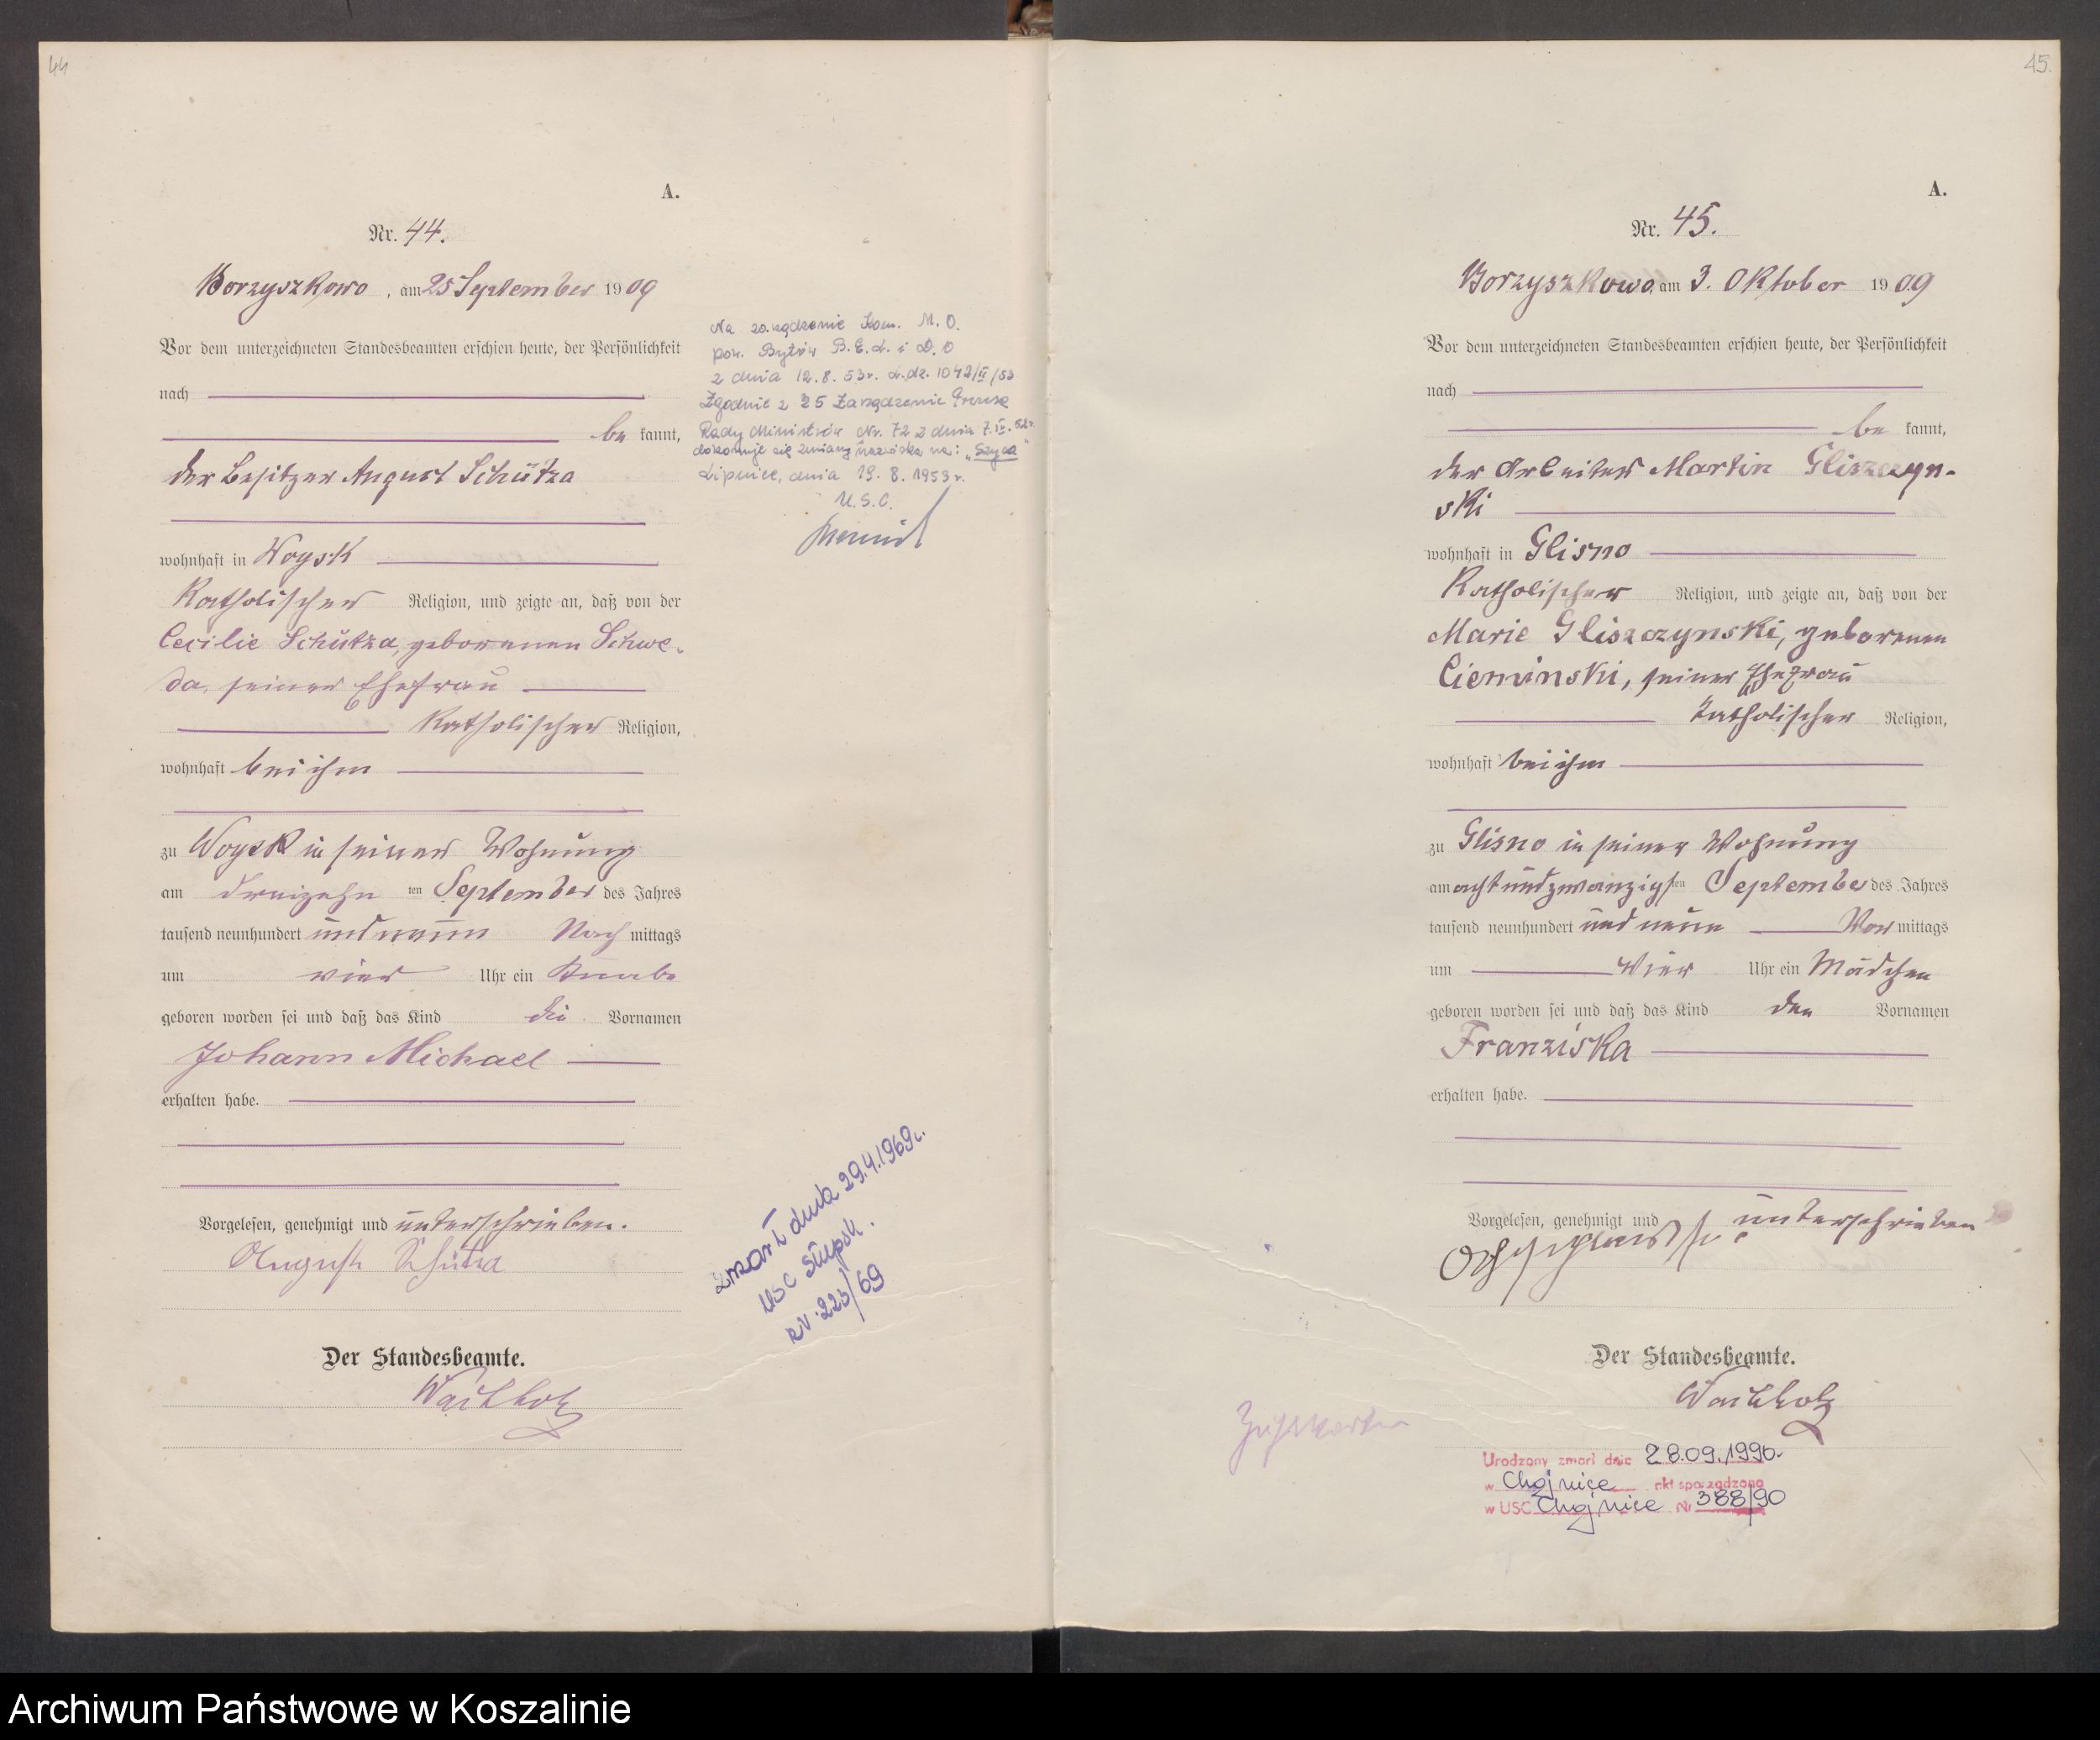 44
A.
Nr. 44.
Borzyszkowo, am 25 September 1909
Vor dem unterzeichneten Standesbeamten erschien heute, der Persönlichkeit
nach
be kannt,
der Besitzer August Schütza
wohnhaft in Woysk
Katholischer Religion, und zeigte an, daß von der
Cecilie Schütza, geborenen Schwe-
da, seiner Ehefrau
Katholischer Religion,
wohnhaft bei ihm
zu Woysk in seiner Wohnung
am dreizehn ten September des Jahres
tausend neunhundert und neun Nach mittags
um vier Uhr ein Knabe
geboren worden sei und daß das Kind die Vornamen
Johann Michael
erhalten habe.
Vorgelesen, genehmigt und unterschrieben.
August Schütza
Der Standesbeamte.
Wachholz
Na zarządzenie Kom. M. O.
pow. Bytów B. E. L. i D. O
z dnia 12. 8. 53 r. L. dz. 1042/II/53
Zgodnie z § 5 Zarządzenie Prezesa
Rady Ministrów Nr. 72 z dnia 7. IV. 52 r.
dokonuje się zmiany nazwiska na: „Szyca"
Lipnice, dnia 19. 8. 1953 r.
U. S. C.
zmarł dnia 29.4.1969 r.
USC Słupsk.
nr. 223/69
45.
A.
Nr. 45.
Borzyszkowo am 3. Oktober 1909
Vor dem unterzeichneten Standesbeamten erschien heute, der Persönlichkeit
nach
be kannt,
der Arbeiter Martin Gliszczyn-
ski
wohnhaft in Glisno
Katholischer Religion, und zeigte an, daß von der
Marie Gliszczynski, geborenen
Cieminski, seiner Ehefrau
katholischer Religion,
wohnhaft bei ihm
zu Glisno in seiner Wohnung
am achtundzwanzigsten September des Jahres
tausend neunhundert und neun Vor mittags
um Vier Uhr ein Mädchen
geboren worden sei und daß das Kind den Vornamen
Franziska
erhalten habe.
Vorgelesen, genehmigt und unterschrieben
Der Standesbeamte.
Wachholz
Urodzony zmarł dnia 28.09.1990.
w Chojnice akt sporządzono
w USC Chojnice Nr 388/90
Archiwum Państwowe w Koszalinie